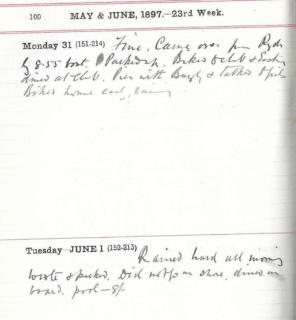 100 MAY & JUNE, 1897.—23rd Week.
Monday 31 (151-214) Fine. Came over from Ryde
by 8.55 boat. Packed up. Biked to Club &
dined at Club. Pier with & talked
Biked home early,
Tuesday JUNE 1 (152-213) Rained hard all morning
wrote & packed. Did not go on shore, dined on
board. pool—8/-